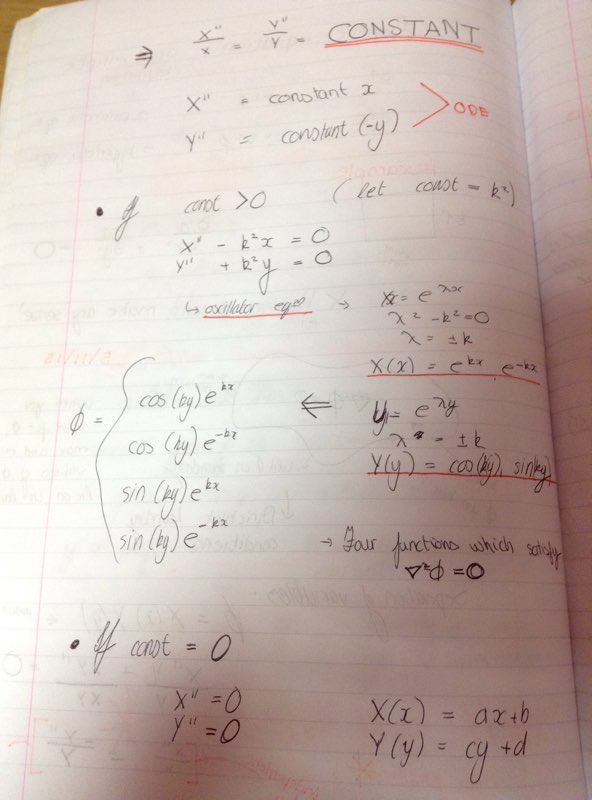 ⇒ X''/x = Y''/Y = CONSTANT
X'' = constant x
Y'' = constant (-y)
ODE
• If const > 0 (let const = k²)
X'' - k²x = 0
Y'' + k²y = 0
↳ oscillator eqⁿ → X = e^λx
λ² - k² = 0
λ = ±k
X(x) = e^kx, e^-kx
y = e^λy
λ = ±k
Y(y) = cos(ky), sin(ky)
⇐
ϕ = { cos(ky) e^kx
cos(ky) e^-kx
sin(ky) e^kx
sin(ky) e^-kx
→ Four functions which satisfy
∇²ϕ = 0
• If const = 0
X'' = 0
Y'' = 0
X(x) = ax+b
Y(y) = cy+d